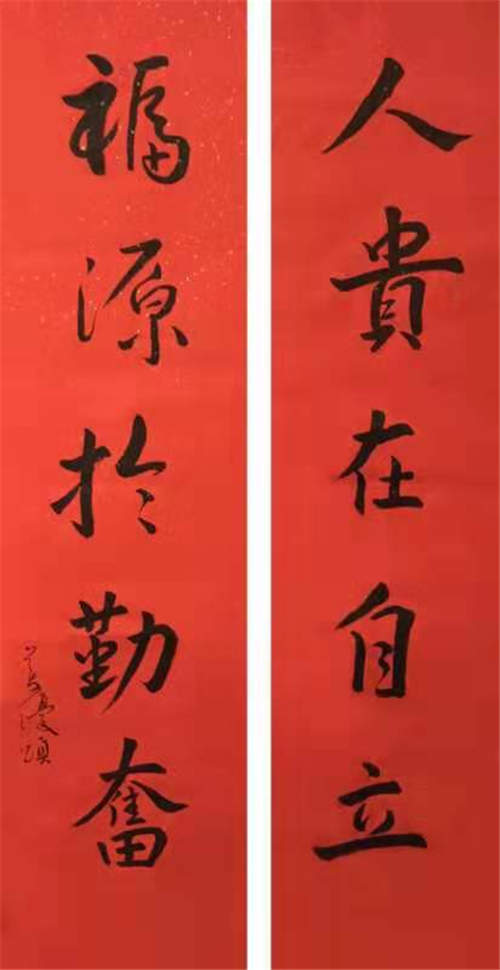 人貴在自立
福源於勤奮